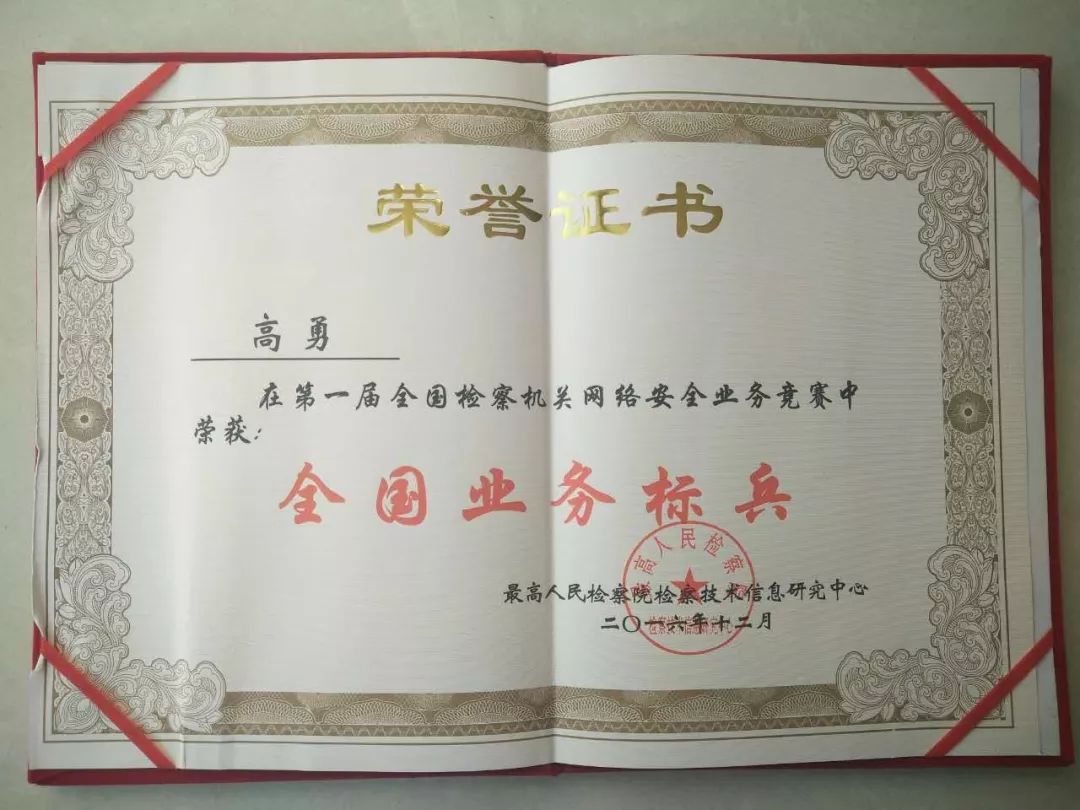 荣誉证书
高勇
在第一届全国检察机关网络安全业务竞赛中
荣获:
全国业务标兵
最高人民检察院检察技术信息研究中心
二〇一六年十二月
最高人民检察院
检察技术信息研究中心